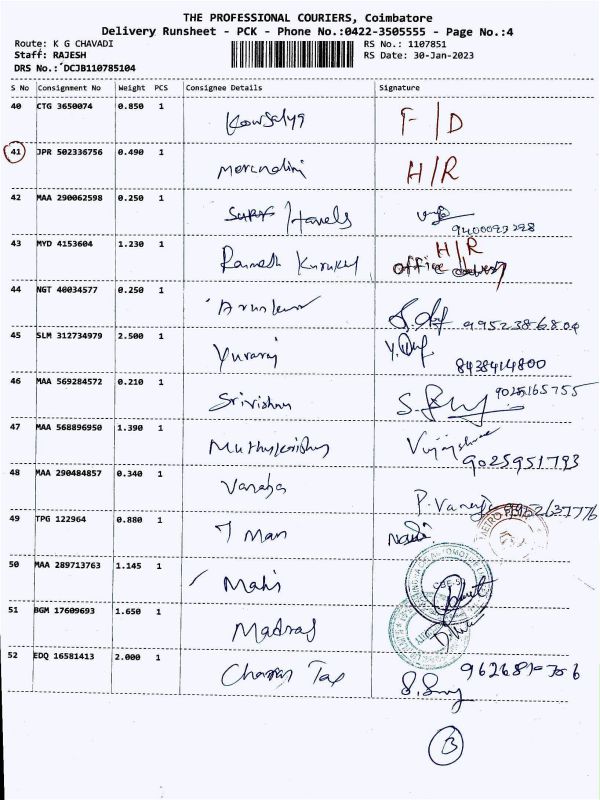 THE PROFESSIONAL COURIERS, Coimbatore
Delivery Runsheet - PCK - Phone No.:0422-3505555 - Page No.:4
Route: K G CHAVADI RS No.: 1107851
Staff: RAJESH RS Date: 30-Jan-2023
DRS No.: DCJB110785104
S No Consignment No Weight PCS Consignee Details Signature
40 CTG 3650074 0.850 1 Kowsalya F/D
41 JPR 502336756 0.490 1 H/R
42 MAA 290062598 0.250 1
43 MYD 4153604 1.230 1 H/R
Ramesh office delivery
44 NGT 40034577 0.250 1 Arun
45 SLM 312734979 2.500 1 Yuvaraj
8438414800
46 MAA 569284572 0.210 1 Srivishnu 9025165755
47 MAA 568896950 1.390 1
9025951793
48 MAA 290484857 0.340 1 P.
49 TPG 122964 0.880 1 Man
METRO
50 MAA 289713763 1.145 1 Mahi
51 BGM 17609693 1.650 1 Madras
52 EDQ 16581413 2.000 1 Tax